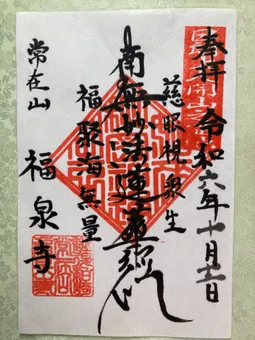 奉拝 令和六年十月十二日
慈眼視衆生
南無妙法蓮華経
福聚海無量
常在山
福泉寺